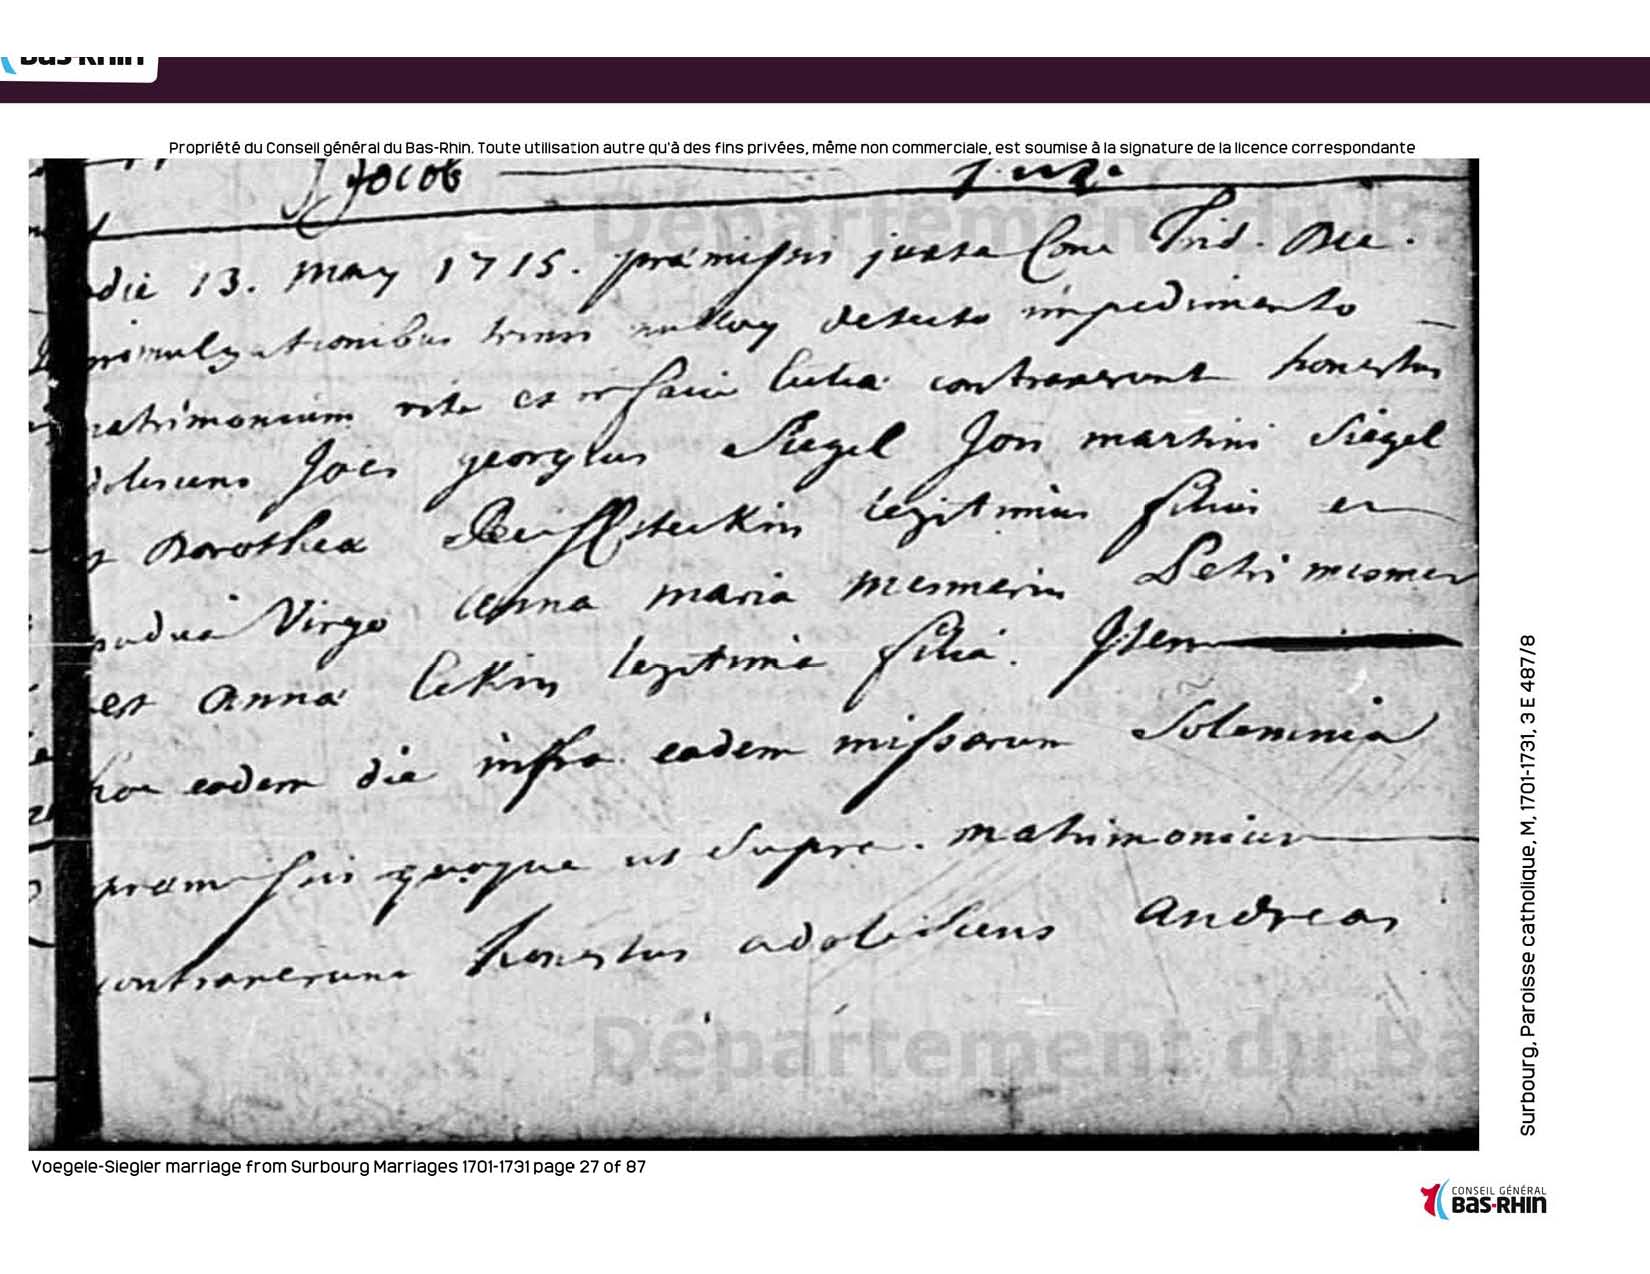 Bas-Rhin
Propriété du Conseil général du Bas-Rhin. Toute utilisation autre qu'à des fins privées, même non commerciale, est soumise à la signature de la licence correspondante
Jocob
die 13. may 1715. præmissis juxta Conc Trid. Dec.
promulgationibus trinis nulloq detecto impedimento
matrimonium rite et in facie contraxerunt honestus
adolescens Joes georgius Siegel Jois martini Siegel
et Dorothea legitimus filius et
pudica Virgo Anna maria mesmerin Petri mesmer
est Anna legitima filia. Item
hoc eodem die infra eadem missarum Solemnia
præmissis quoque ut Supra. matrimonium
contraxerunt honestus adolescens Andreas
Département du Ba
Département du Ba
Surbourg, Paroisse catholique, M, 1701-1731, 3 E 487/8
Voegele-Siegler marriage from Surbourg Marriages 1701-1731 page 27 of 87
CONSEIL GÉNÉRAL
BAS-RHIN